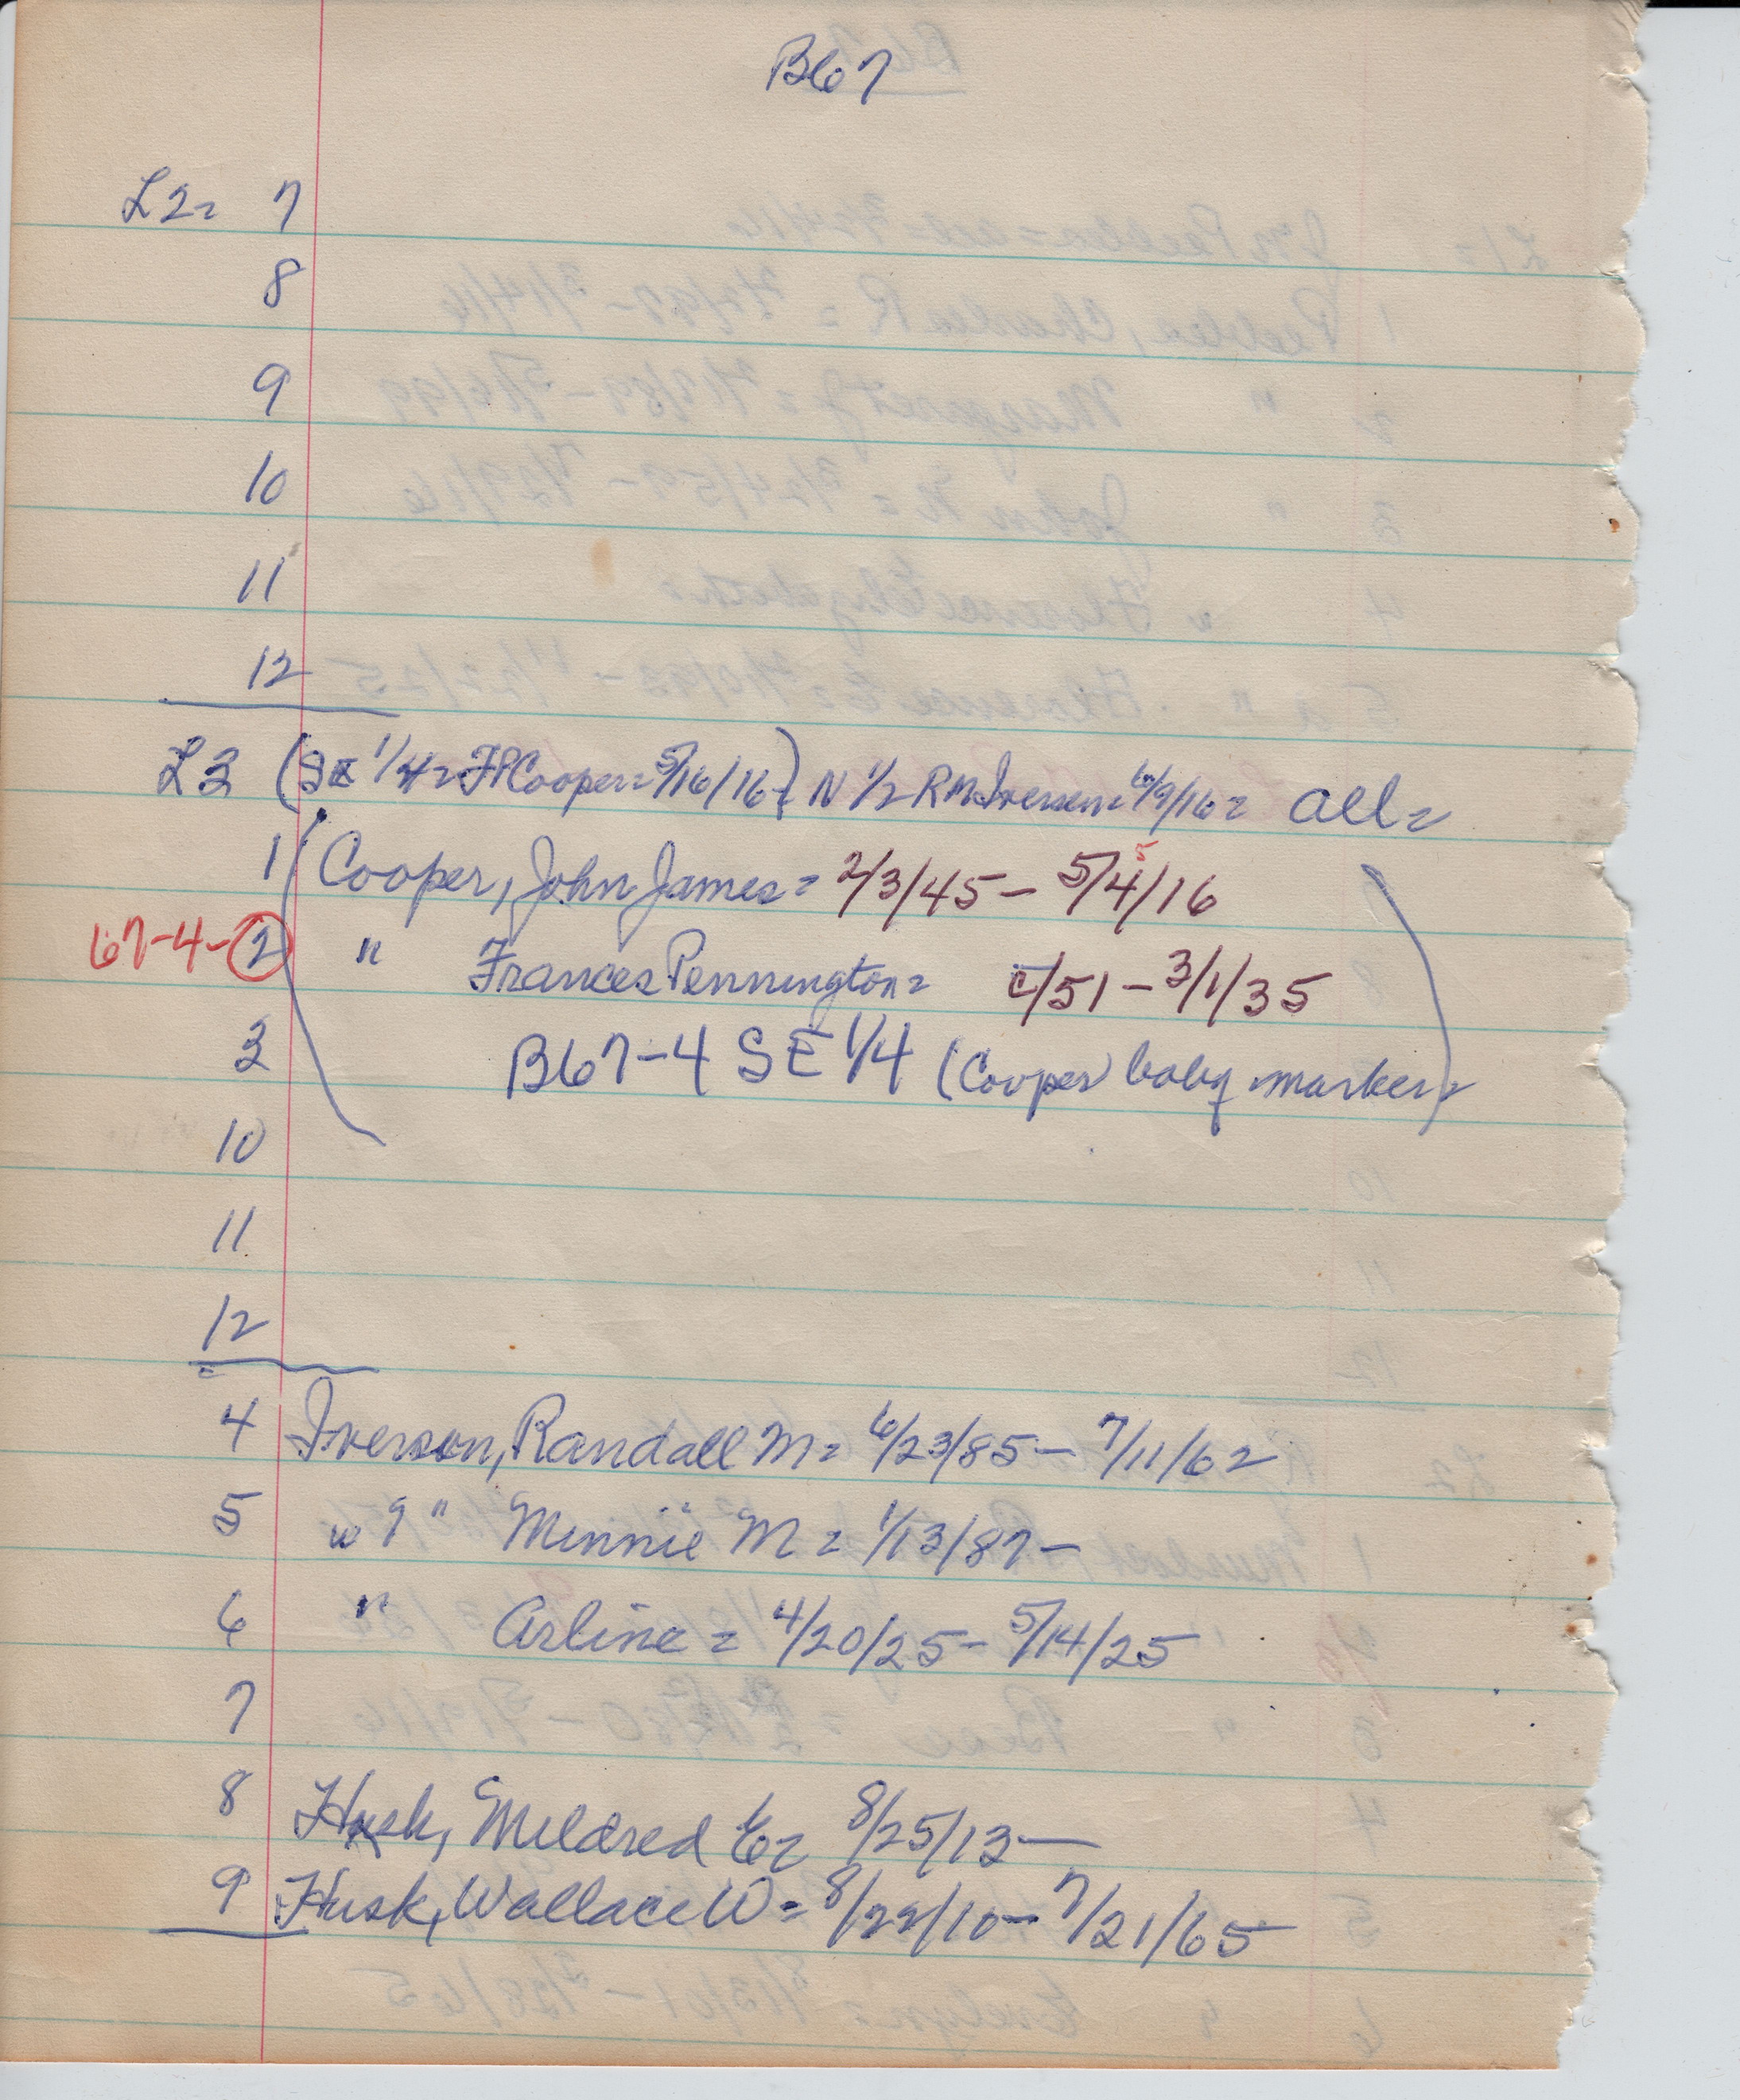 B67
L2= 7
8
9
10
11
12
L3 (SE 1/4= FP Cooper= 5/16/16) N 1/2 RM Iversen= 6/9/16= all=
1 Cooper, John James= 2/3/45 - 5/4/16
5
67-4-2 " Frances Pennington= c/51 - 3/1/35
3 B67-4 SE 1/4 (Cooper) baby marker=
10
11
12
4 Iverson, Randall M= 6/23/85 - 7/11/62
5 w 9 " Minnie M= 1/13/87 -
6 " Arline = 4/20/25 - 5/14/25
7
8 Husk, Mildred E= 8/25/13 -
9 Husk, Wallace W= 8/22/10 - 7/21/65